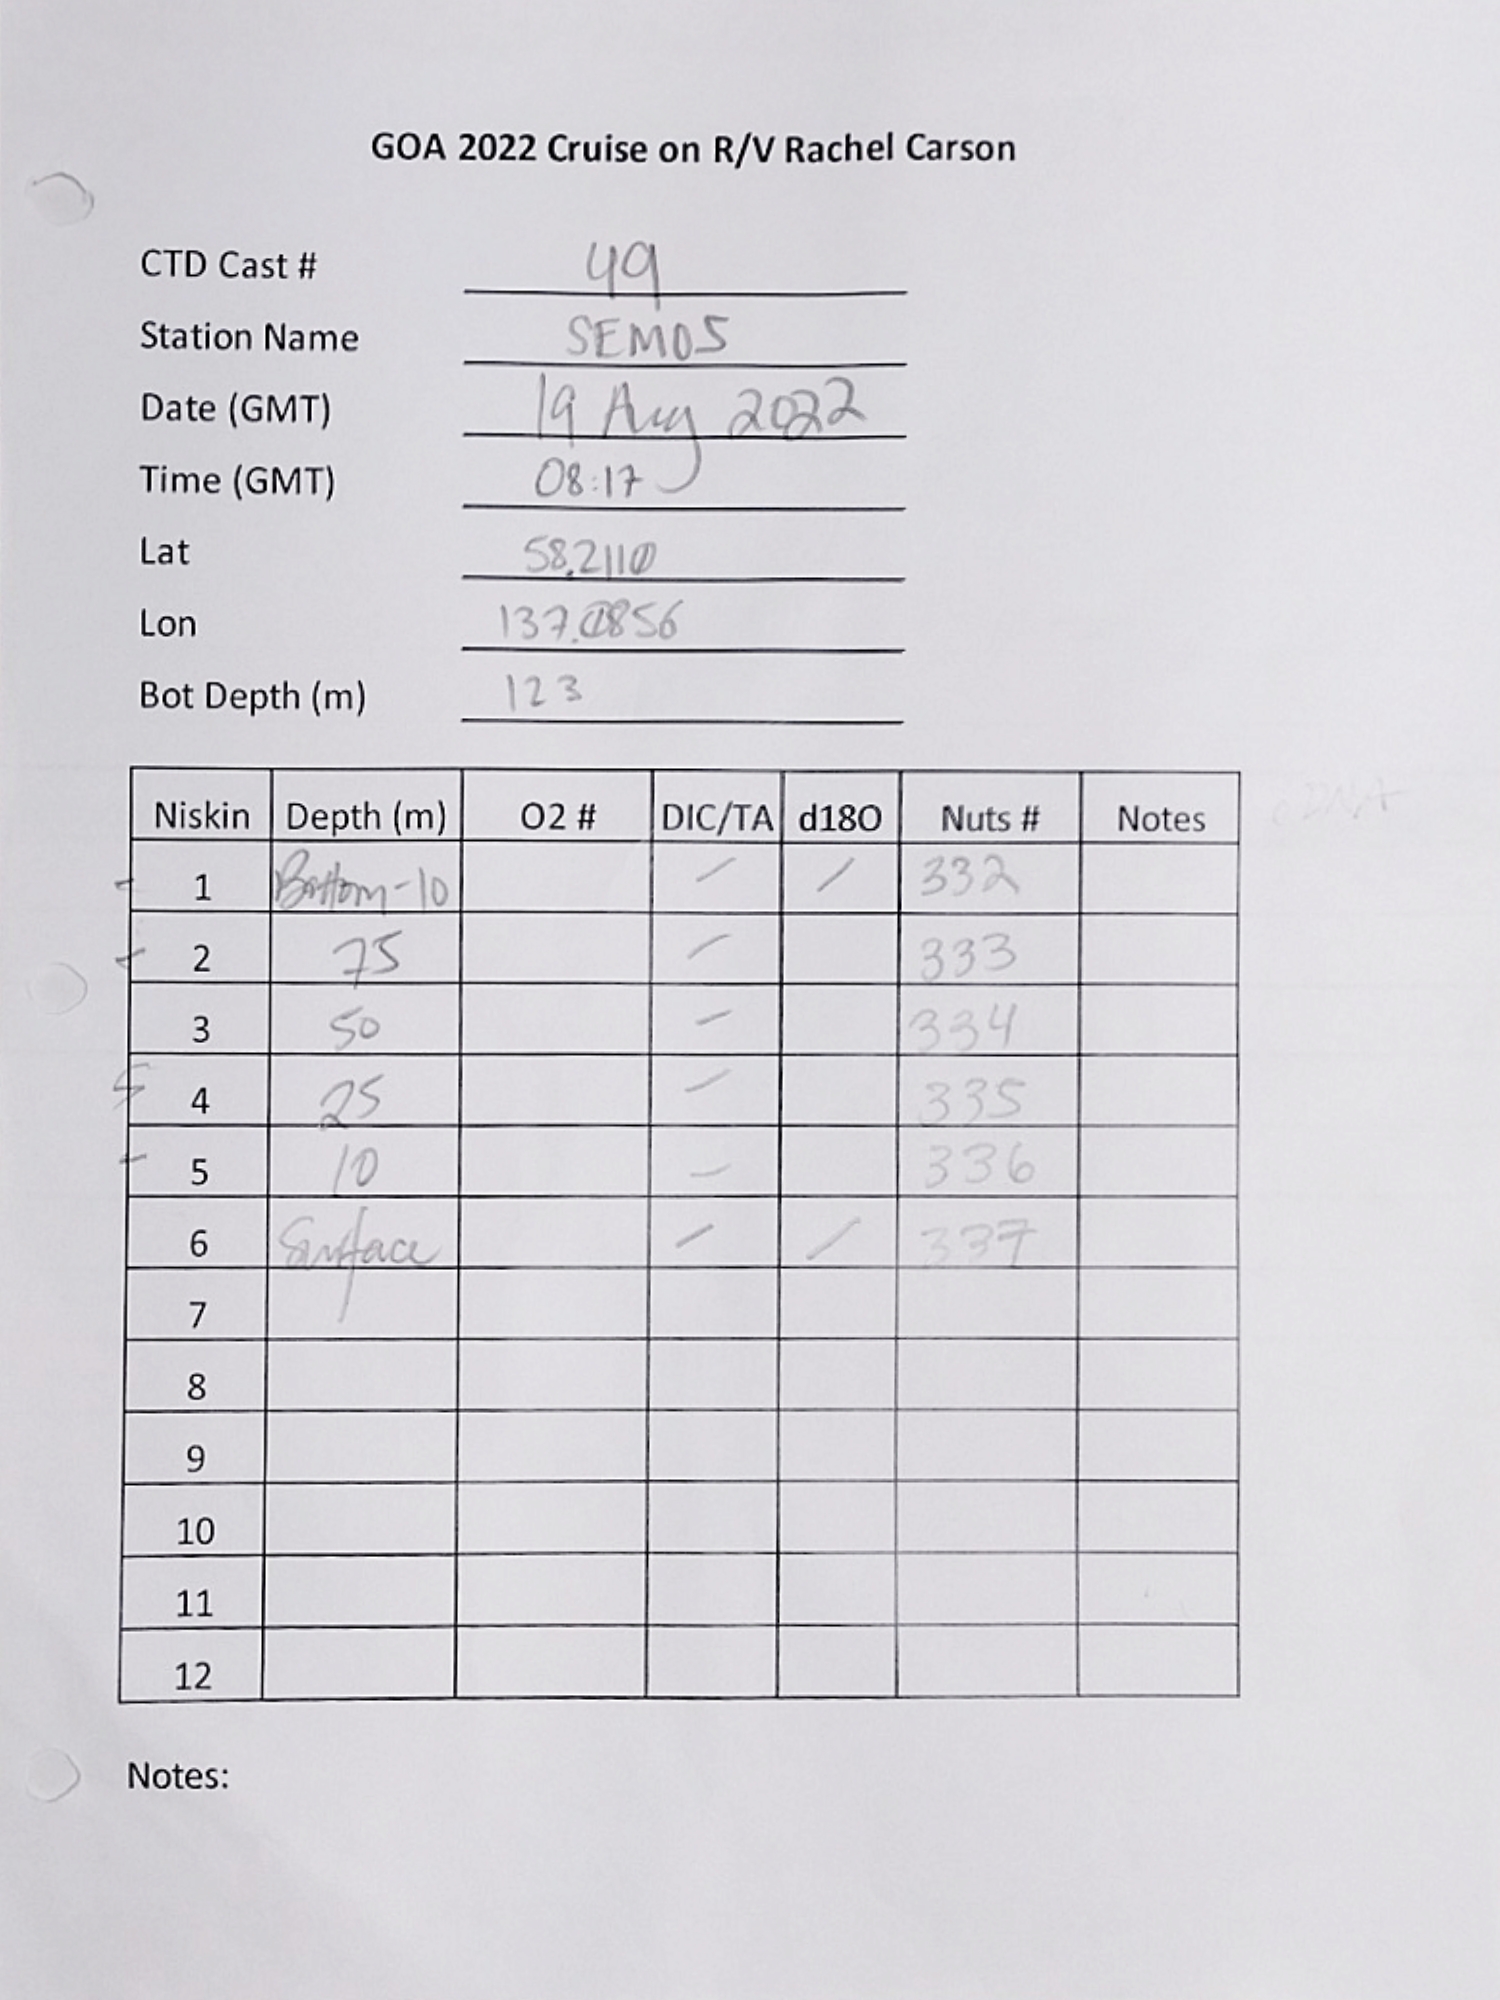 GOA 2022 Cruise on R/V Rachel Carson
CTD Cast # 49
Station Name SEM05
Date (GMT) 19 Aug 2022
Time (GMT) 08:17
Lat 58.2110
Lon 137.0856
Bot Depth (m) 123
Niskin Depth (m) O2 # DIC/TA d18O Nuts # Notes
1 Bottom-10 / / 332
2 75 / 333
3 50 / 334
4 25 / 335
5 10 - 336
6 Surface / / 337
7
8
9
10
11
12
Notes: